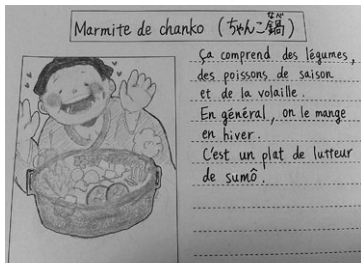 Marmite de chanko (ちゃんこ鍋)
なべ
Ça comprend des légumes,
des poissons de saison
et de la volaille.
En général, on le mange
en hiver.
C'est un plat de lutteur
de sumô.